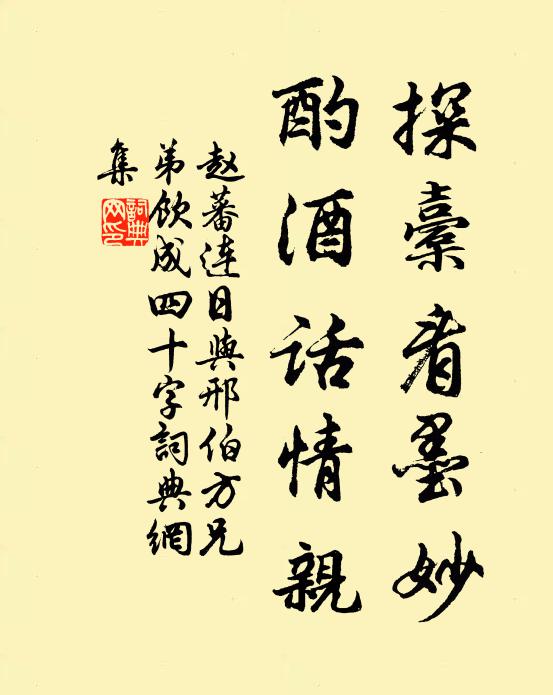 探囊看墨妙
酌酒話情親
赵蕃連日與邢伯方兄
弟飲成四十字詞典網
集
詞典
网印